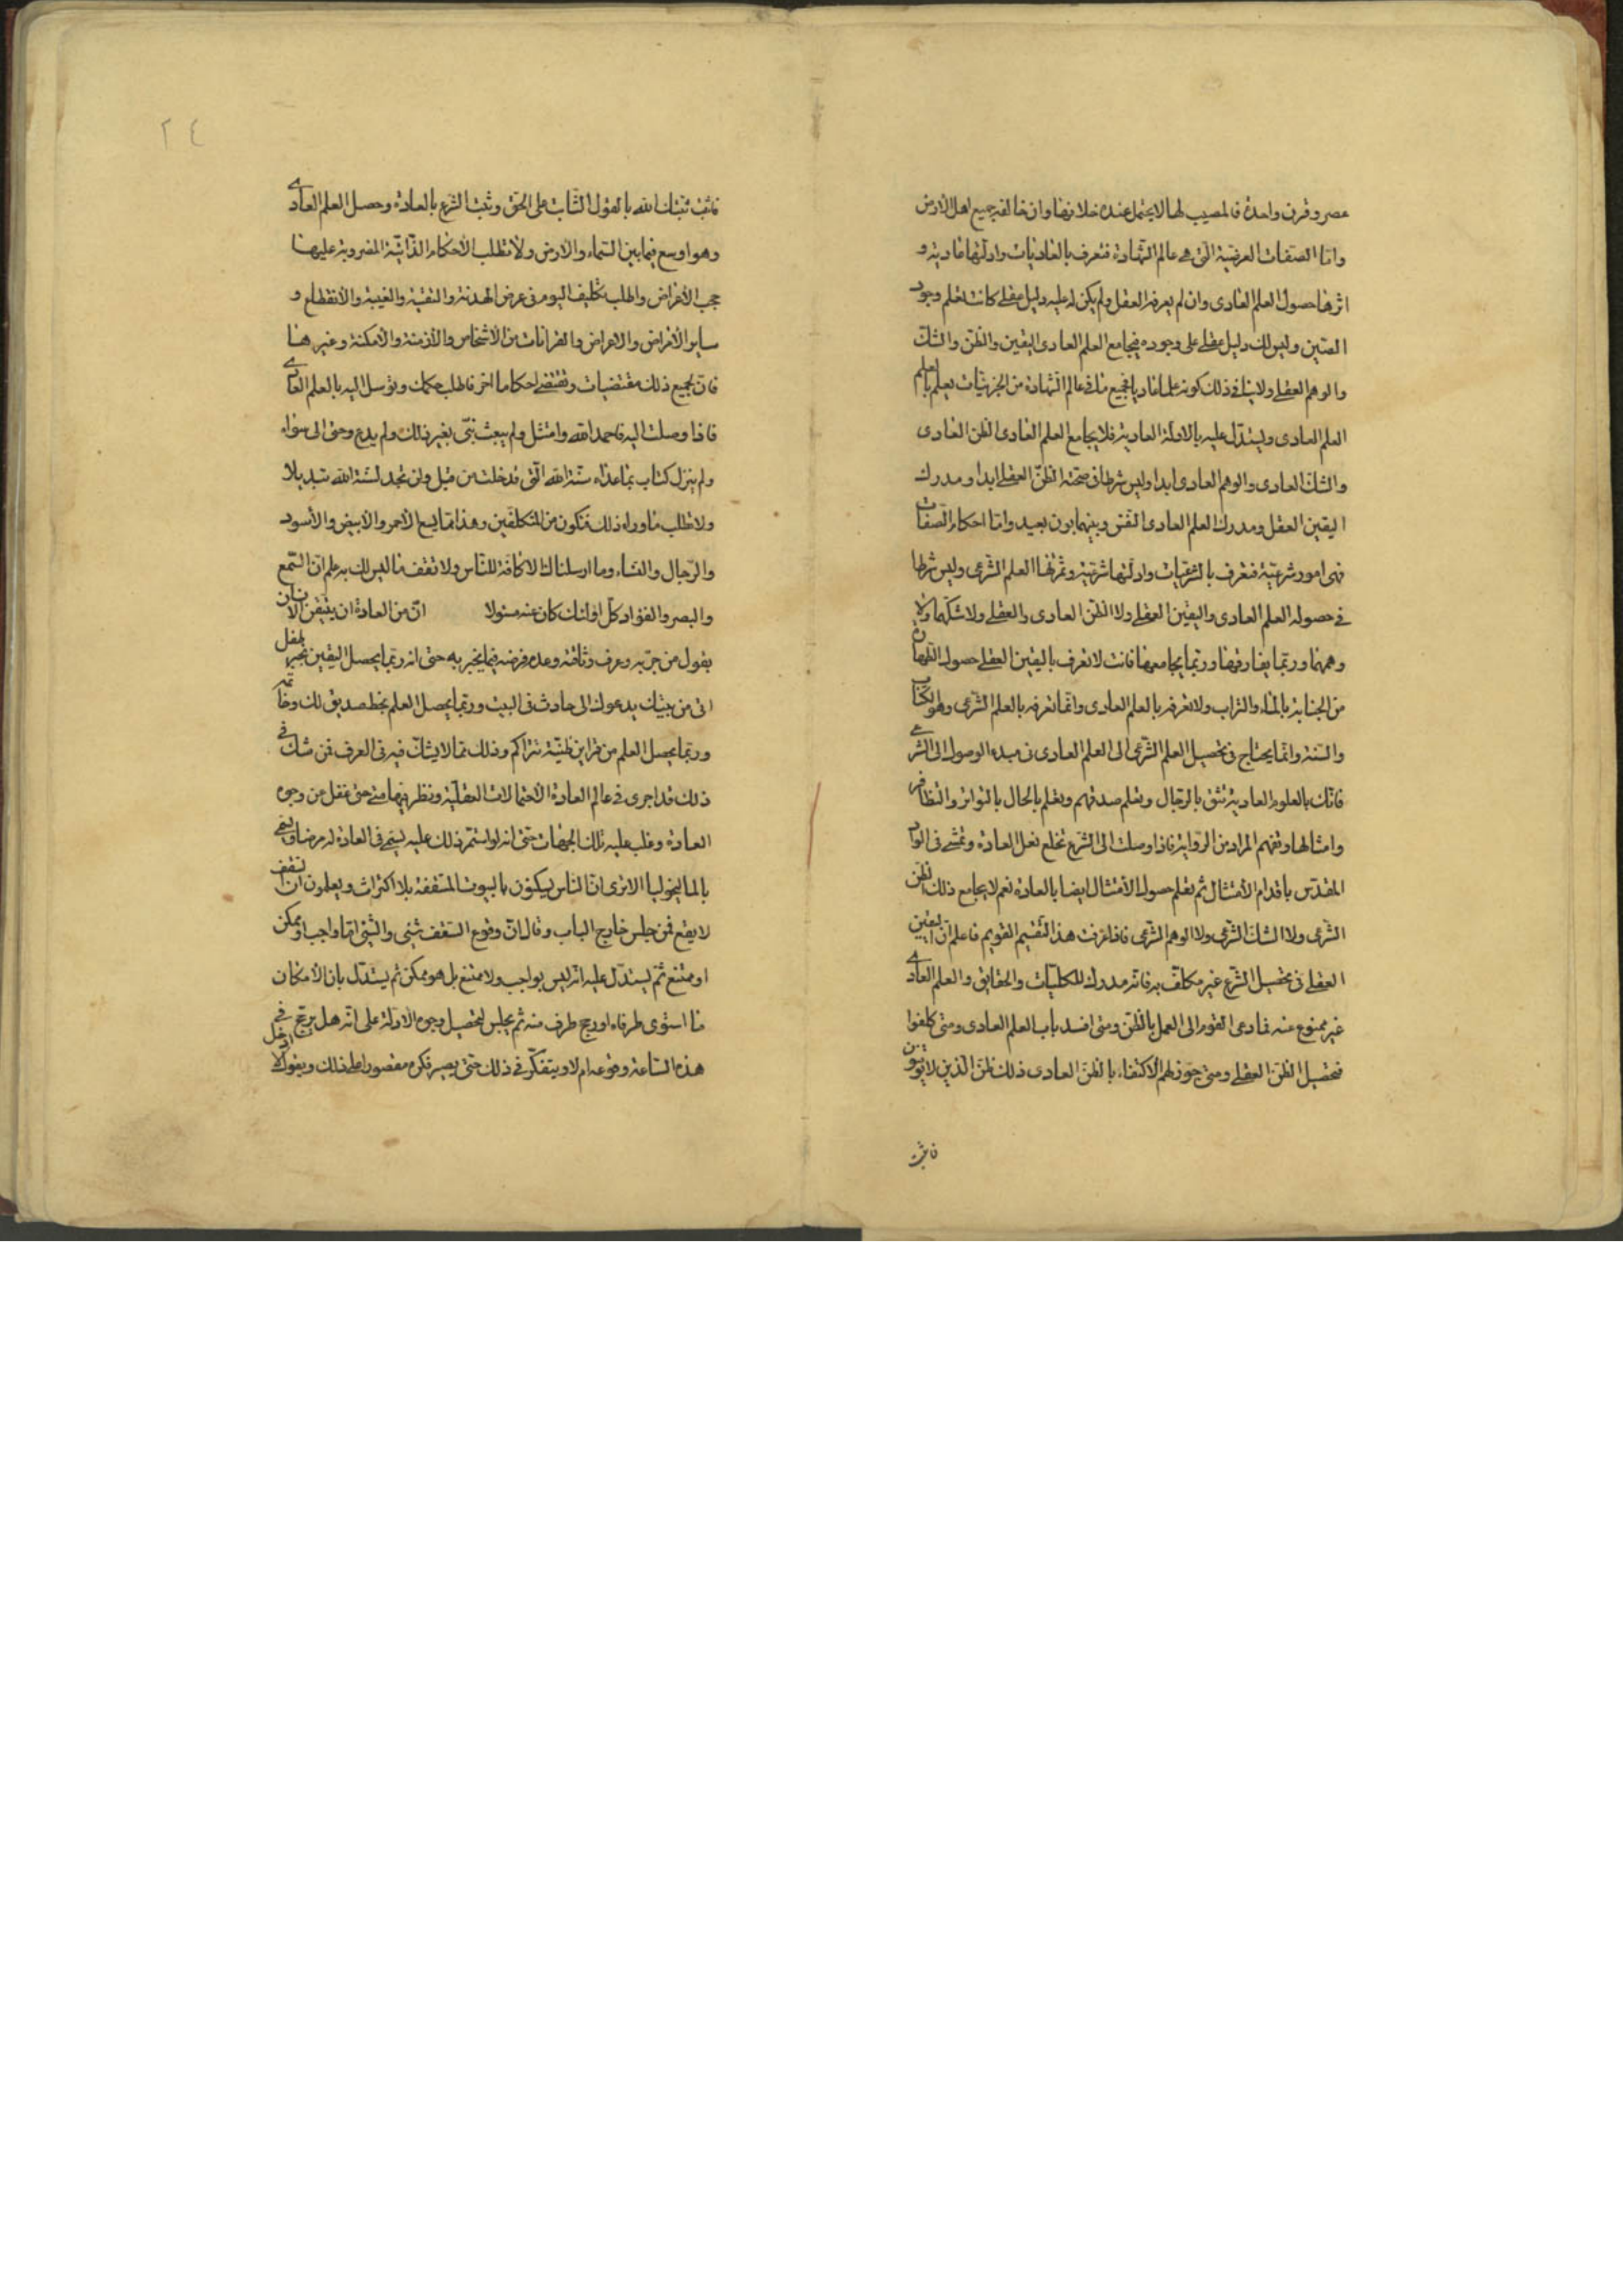 عصر وقرن واحدة فالمصيب لها لا يحتمل عنده خلافها وان خالفه جميع اهل الارض
واما الصفات العرضية التي هي عالم الشهادة فتعرف بالعاديات وادلتها عادية و
اثرها حصول العلم العادي وان لم يعرفه العقل ولم يكن له عليه دليل عقلي كانت تعلم وجود
الصين وليس لك دليل عقلي على وجوده فيجامع العلم العادي اليقين والظن والشك
والوهم العقلي ولا ينافي ذلك كونه علما عاديا فجميع ما في عالم الشهادة من الجزئيات يعلم بالعلم
العلم العادي ويستدل عليه بالادلة العادية فلا يجامع العلم العادي الظن العادي
والشك العادي والوهم العادي ابدا وليس شرطا في صحته الظن العقلي ابدا ومدرك
اليقين العقل ومدرك العلم العادي النفس وبينهما بون بعيد واما احكام الصفات
فهي امور شرعية فتعرف بالشرعيات وادلتها شرعية وثمرتها العلم الشرعي وليس شرطا
في حصوله العلم العادي واليقين العقلي ولا الظن العادي والعقلي ولا شكهما ولا
وهمهما وربما يفارقها وربما يجامعها فانت لا تعرف باليقين العقلي حصول الطهارة
من الجنابة بالماء والتراب ولا تعرفه بالعلم العادي وانما تعرفه بالعلم الشرعي وهو الكتاب
والسنة وانما يحتاج في تحصيل العلم الشرعي الى العلم العادي في مبدء الوصول الى الشرع
فانك بالعلوم العادية تثق بالرجال وتعلم صدقهم وتعلم بالحال بالتواتر والتظافر
وامثالها وتفهم المراد من الرواية فاذا وصلت الى الشرع تخلع نعل العادة وتمشي في الواد
المقدس باقدام الامتثال ثم تعلم حصول الامتثال ايضا بالعادة نعم لا يجامع ذلك الظن
الشرعي ولا الشك الشرعي ولا الوهم الشرعي فاذا عرفت هذا التقسيم القويم فاعلم ان اليقين
العقلي في تحصيل الشرع غير مكلف به فانه مدرك للكليات والحقايق والعلم العادي
غير ممنوع عنه فما دعى القوم الى العمل بالظن ومتى انسد باب العلم العادي ومتى كلفوا
تحصيل الظن العقلي ومتى جوز لهم الاكتفاء بالظن العادي ذلك ظن الذين لا يوقنون
فاثبت
٢٤
فاثبت ثبتك الله بالقول الثابت على الحق وثبت الشرع بالعادة وحصل العلم العادي
وهو اوسع فيما بين السماء والارض ولا تطلب الاحكام الذاتية المضروبة عليها
حجب الاعراض واطلب تكليف اليوم في عرض الهدنة والتقية والغيبة والانقطاع و
ساير الاغراض والاعراض والقرانات من الاشخاص والازمنة والامكنة وغيرها
فان لجميع ذلك مقتضيات وتقتضي احكاما اخر فاطلب حكمك وتوسل اليه بالعلم العادي
فاذا وصلت اليه فاحمد الله وامتثل ولم يبعث نبي بغير ذلك ولم يدع وحي الى سواه
ولم ينزل كتاب بما عداه سنة الله التي قد خلت من قبل ولن تجد لسنة الله تبديلا
ولا تطلب ما وراء ذلك فتكون من المتكلفين وهذا مما يسع الاحمر والابيض والاسود
والرجال والنساء وما ارسلناك الا كافة للناس ولا تقف ما ليس لك به علم ان السمع
والبصر والفؤاد كل اولئك كان عنه مسئولا ان من العادة ان يتيقن الانسان
بقول من جربه وعرف وثاقته وعدم غرضه فيما يخبر به حتى انه ربما يحصل اليقين بخبر طفل
اتى من بيتك يدعوك الى حادث في البيت وربما يحصل العلم بخط صديق لك وخاتمه
وربما يحصل العلم من قراين ظنية تتراكم وذلك مما لا يشك فيه في العرف فمن شك في
ذلك فقد اجرى في عالم العادة الاحتمالات العقلية ونظر فيها حتى غفل من وجوه
العادة وغلب عليه تلك الجهات حتى انه لو استمر ذلك عليه يسمى في العادة له مرضا ويسمى
بالماليخوليا الا ترى ان الناس يسكنون بالبيوت المسقفة بلا اكتراث ويعلمون ان السقف
لا يقع فمن جلس خارج الباب وقال ان وقوع السقف شيء والشيء اما واجب او ممكن
او ممتنع ثم يستدل عليه انه ليس بواجب ولا ممتنع بل هو ممكن ثم يستدل بان الامكان
ما استوى طرفاه او رجح طرف منه ثم يجلس لتحصيل وجوه الادلة على انه هل يرجح في
هذه الساعة وقوعه ام لا ويتفكر في ذلك حتى يصير فكره مقصورا على ذلك ويقول لا ادخل